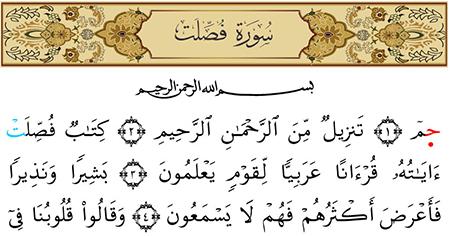 سُورَةُ فُصِّلَتْ
بِسْمِ اللهِ الرَّحْمٰنِ الرَّحِيمِ
جمٓ ﴿١﴾ تَنزِيلٌ مِّنَ ٱلرَّحْمَٰنِ ٱلرَّحِيمِ ﴿٢﴾ كِتَٰبٌ فُصِّلَتْ
ءَايَٰتُهُۥ قُرْءَانًا عَرَبِيًّا لِّقَوْمٍ يَعْلَمُونَ ﴿٣﴾ بَشِيرًا وَنَذِيرًا
فَأَعْرَضَ أَكْثَرُهُمْ فَهُمْ لَا يَسْمَعُونَ ﴿٤﴾ وَقَالُوا۟ قُلُوبُنَا فِىٓ